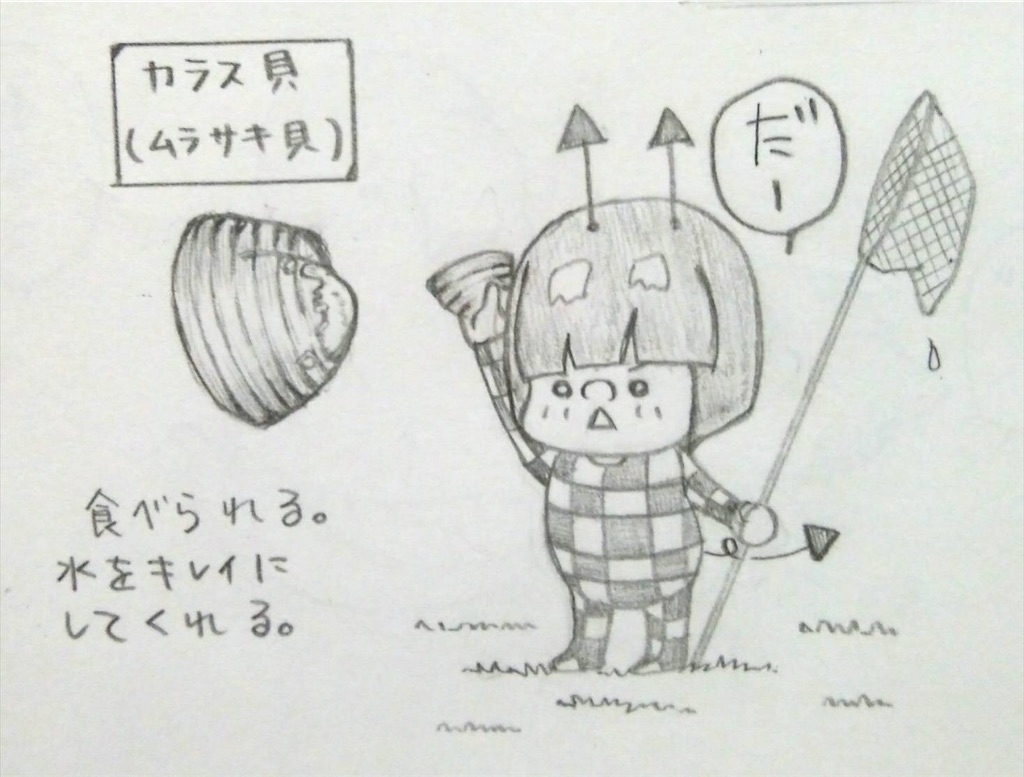 カラス貝
(ムラサキ貝)
だー
食べられる。
水をキレイに
してくれる。